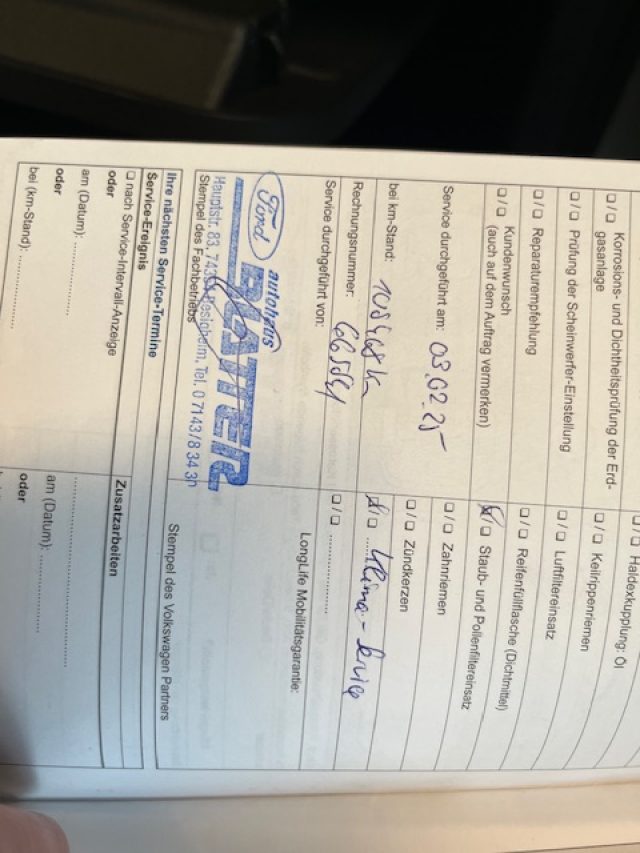 Korrosions- und Dichtheitsprüfung der Erd-
gasanlage
Prüfung der Scheinwerfer-Einstellung
Reparaturempfehlung
Kundenwunsch
(auch auf dem Auftrag vermerken)
Service durchgeführt am: 03.02.25
bei km-Stand:
Rechnungsnummer:
Service durchgeführt von:
Ford autohaus
PLATTER
Hauptstr. 83, Tel. 0 71 43 / 8 34 30
Stempel des Fachbetriebs
Haldexkupplung: Öl
Keilrippenriemen
Luftfiltereinsatz
Reifenfüllflasche (Dichtmittel)
Staub- und Pollenfiltereinsatz
Zahnriemen
Zündkerzen
Klima-Service
LongLife Mobilitätsgarantie:
Stempel des Volkswagen Partners
Ihre nächsten Service-Termine
Service-Ereignis
nach Service-Intervall-Anzeige
oder
am (Datum):
oder
bei (km-Stand):
Zusatzarbeiten
am (Datum):
oder